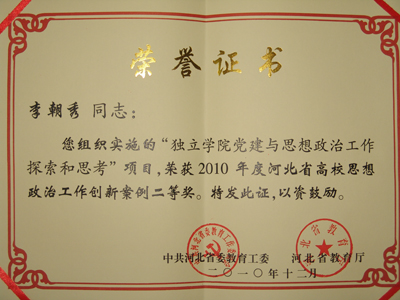 荣誉证书
李朝秀 同志：
您组织实施的“独立学院党建与思想政治工作
探索和思考”项目，荣获2010年度河北省高校思想
政治工作创新案例二等奖。特发此证，以资鼓励。
中共河北省委教育工委 河北省教育厅
二〇一〇年十二月